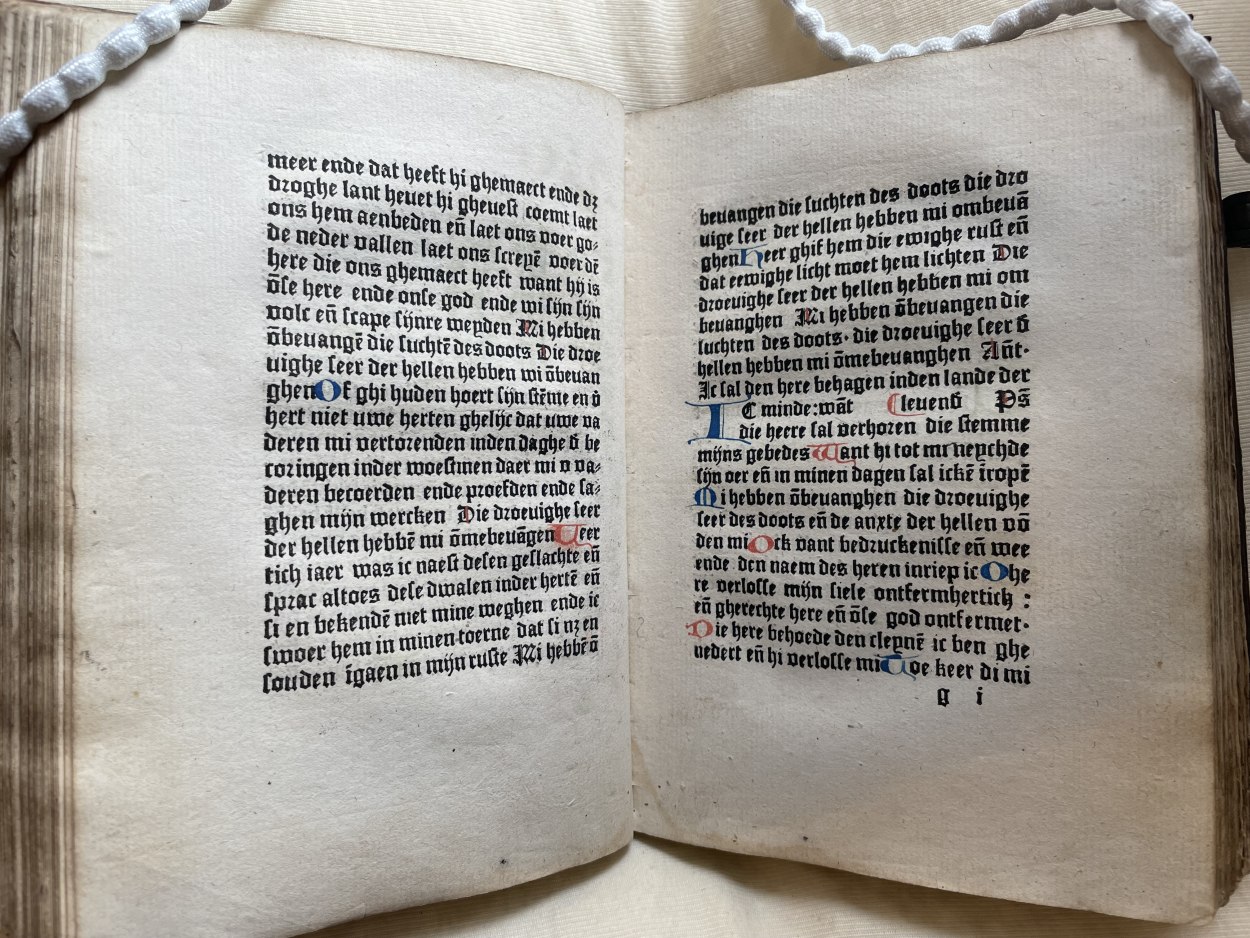 meer ende dat heeft hi ghemaect ende dʒ
droghe lant heuet hi gheuest coemt laet
ons hem aenbeden en̄ laet ons voer go⸗
de neder vallen laet ons screyē voer dē
here die ons ghemaect heeft want hij is
ōse here ende onse god ende wi sijn sijn
volc en̄ scape sijnre weyden Mi hebben
ōbeuangē die suchtē des doots Die droe
uighe seer der hellen hebben mi ōbeuan
ghen Of ghi huden hoert sijn stēme en v̄
hert niet uwe herten ghelijc dat uwe va
deren mi vertorenden inden daghe đ be
coringen inder woestinen daer mi v va⸗
deren becoerden ende proefden ende sa⸗
ghen mijn wercken Die droeuighe seer
der hellen hebbē mi ōmebeuāgen Ueer
tich iaer was ic naest desen geslachte en̄
sprac altoes dese dwalen inder hertē en̄
si en bekendē niet mine weghen ende ic
swoer hem in minen toerne dat si nʒ en
souden īgaen in mijn ruste Mi hebbē ō
beuangen die suchten des doots die dro
uige seer der hellen hebben mi ombeuā
ghen Heer ghif hem die ewighe rust en̄
dat eewighe licht moet hem lichten Die
droeuighe seer der hellen hebben mi om
beuanghen Mi hebben ōbeuangen die
suchten des doots· die droeuighe seer đ
hellen hebben mi ōmebeuanghen An̄t·
Ic sal den here behagen inden lande der
leuenđ Ps
IC minde: wāt
die heere sal verhoren die stemme
mijns gebedes Want hi tot mi neychde
sijn oer en̄ in minen dagen sal ickē īropē
Mi hebben ōbeuanghen die droeuighe
seer des doots en̄ de anxte der hellen vō
den mi Ock vant bedruckenisse en̄ wee
ende den naem des heren inriep ic O he
re verlosse mijn siele ontfermhertich :
en̄ gherechte here en̄ ōse god ontfermet·
Die here behoede den cleynē ic ben ghe
vedert en̄ hi verlosse mi Toe keer di mi
g i